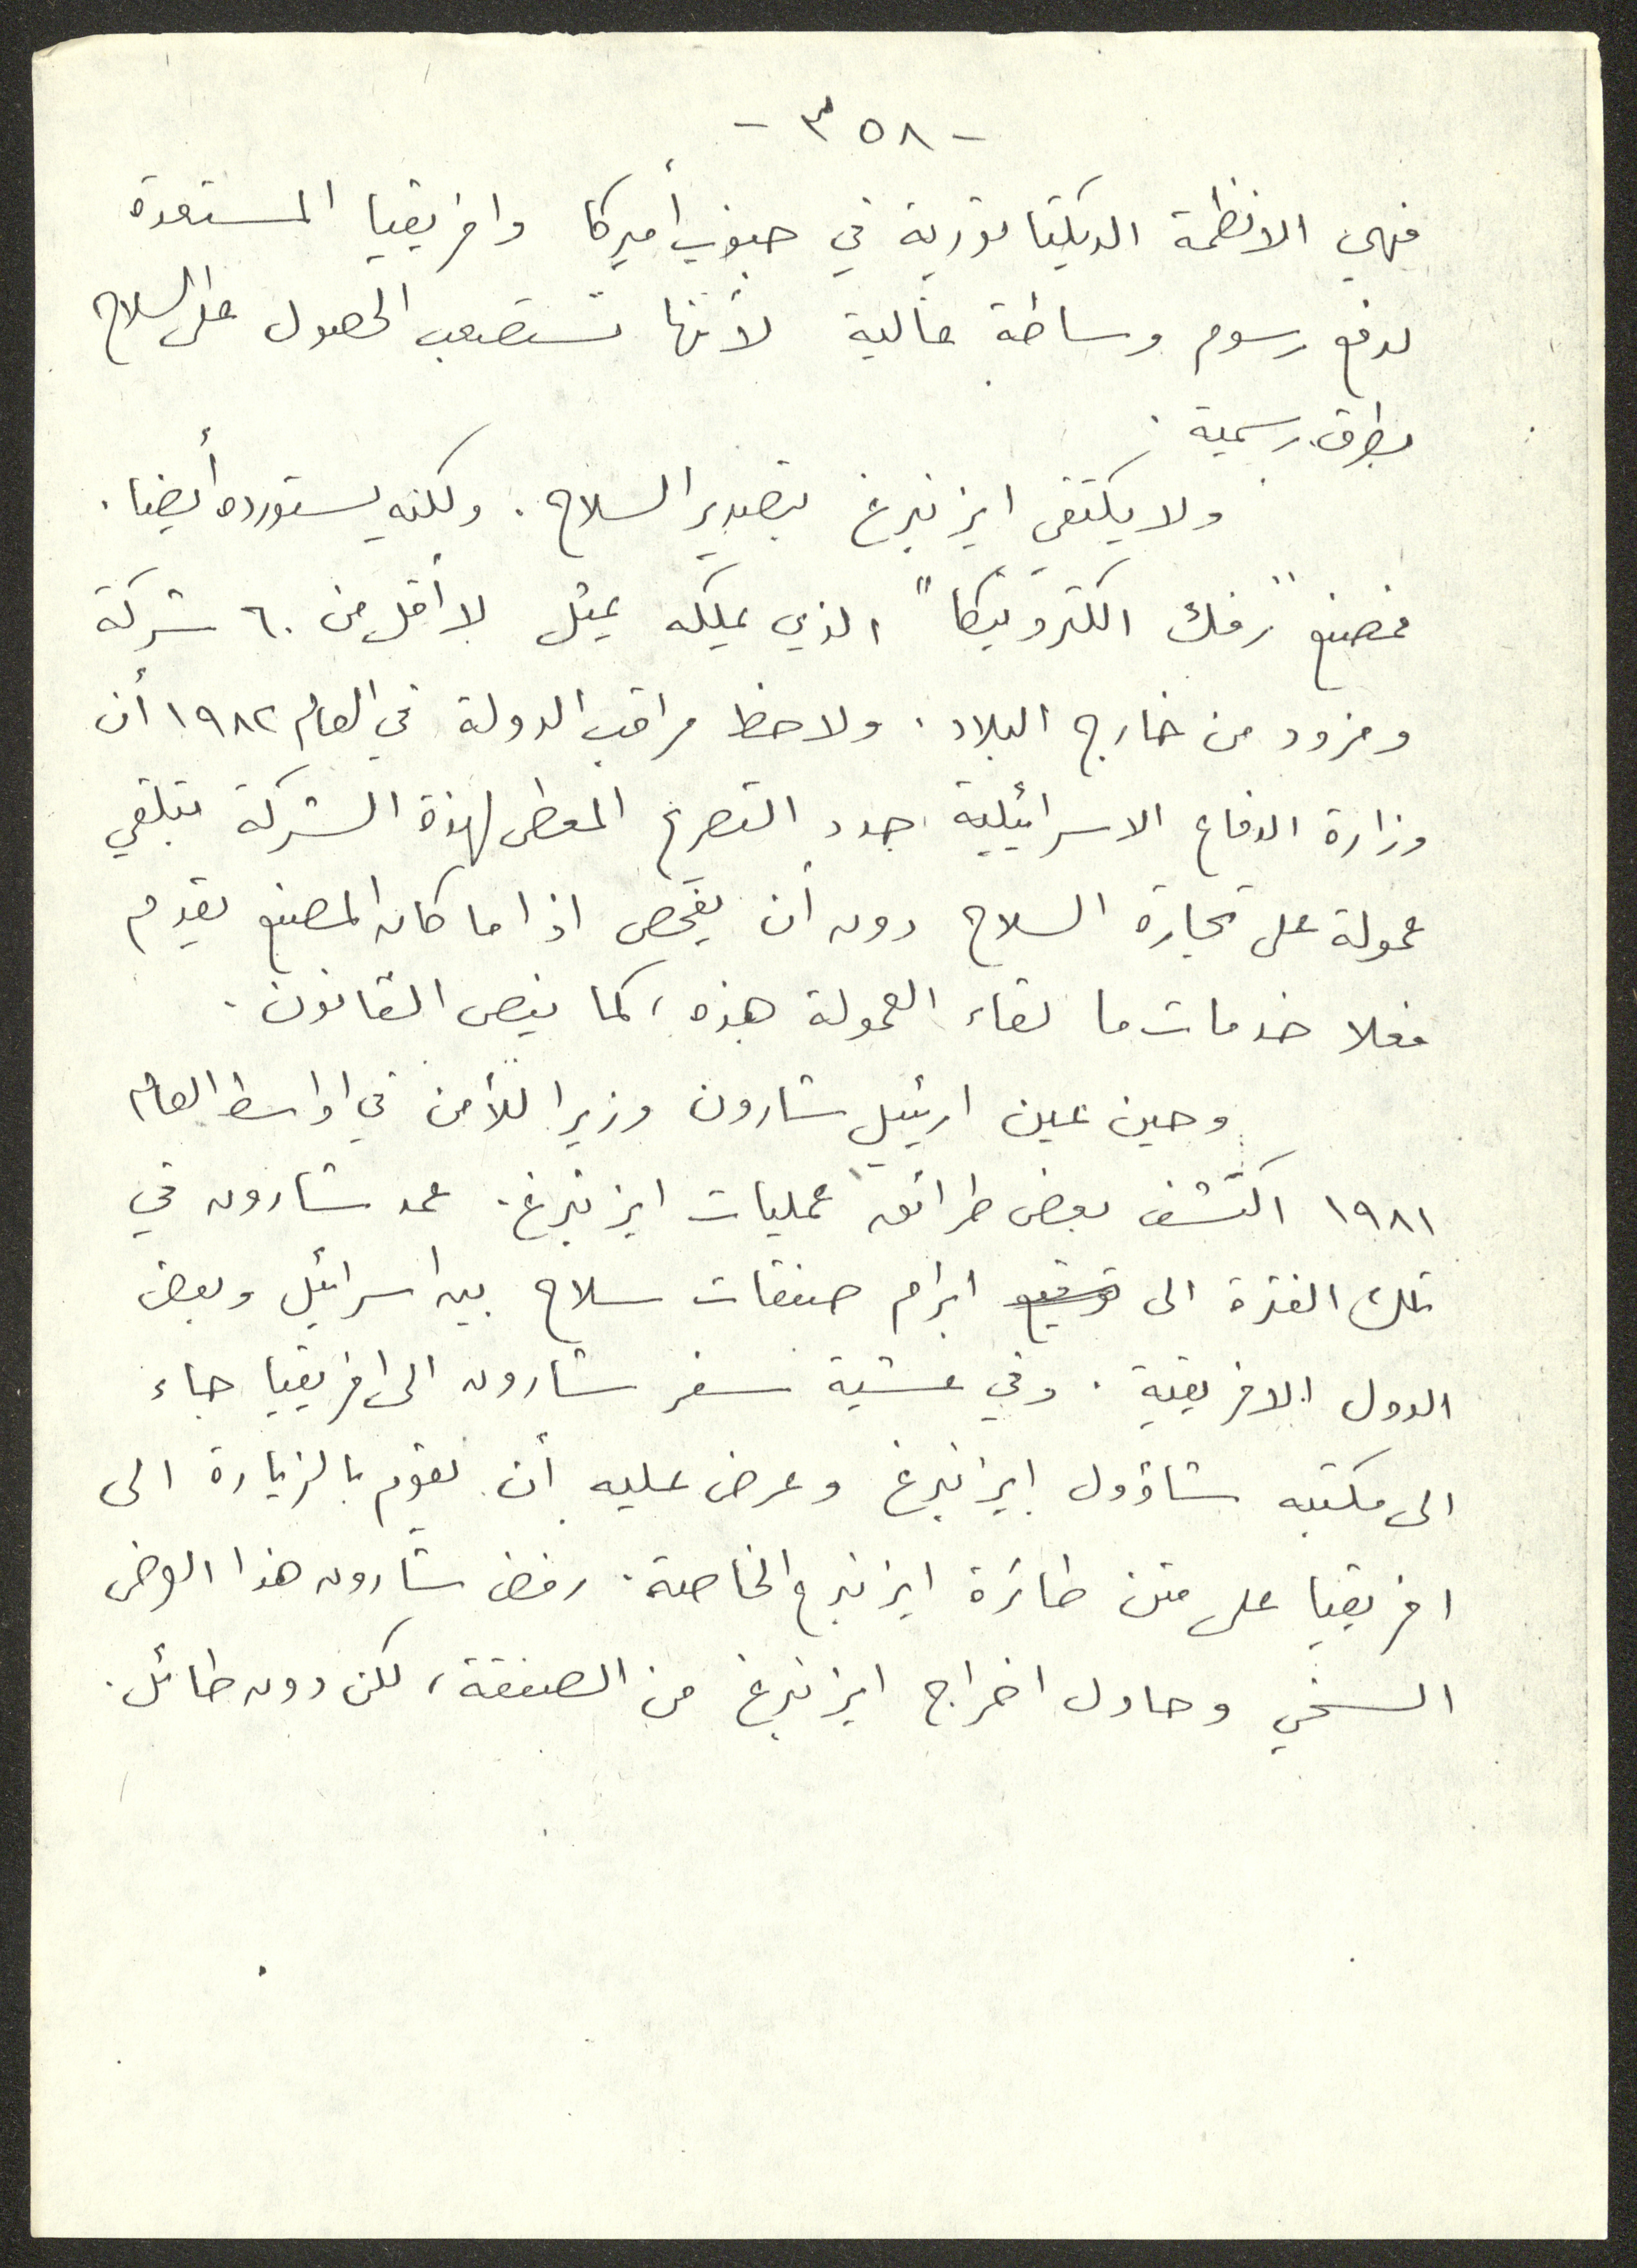 - ٣٥٨ -
فهي الانظمة الديكتاتورية في جنوب أميركا وافريقيا المستعدة
لدفع رسوم وساطة عالية لأنها تستصعب الحصول على السلاح
بطرق رسمية .
ولا يكتفي ايزنبرغ بتصدير السلاح . ولكنه يستورده أيضا .
فمصنع "رفك الكترونيكا" الذي يملكه يمثل لا أقل من ٦٠ شركة
ومزود من خارج البلاد . ولاحظ مراقب الدولة في العام ١٩٨٢ أن
وزارة الدفاع الاسرائيلية جدد التصريح المعطى لهذة الشركة بتلقي
عمولة على تجارة السلاح دون أن يفحص اذا ما كان المصنع يقدم
فعلا خدمات ما لقاء العمولة هذه ، كما ينص القانون .
وحين عين ارئيل شارون وزيرا للأمن في اواسط العام
١٩٨١ اكتشف بعض طرائق عمليات ايزنبرغ . عمد شارون في
تلك الفترة الى توقيع ابرام صفقات سلاح بين اسرائيل وبعض
الدول الافريقية . وفي عشية سفر شارون الى افريقيا جاء
الى مكتبه شاؤول ايزنبرغ وعرض عليه أن يقوم بالزيارة الى
افريقيا على متن طائرة ايزنبرغ الخاصة . رفض شارون هذا العرض
السخي وحاول اخراج ايزنبرغ من الصفقة ، لكن دون طائل .